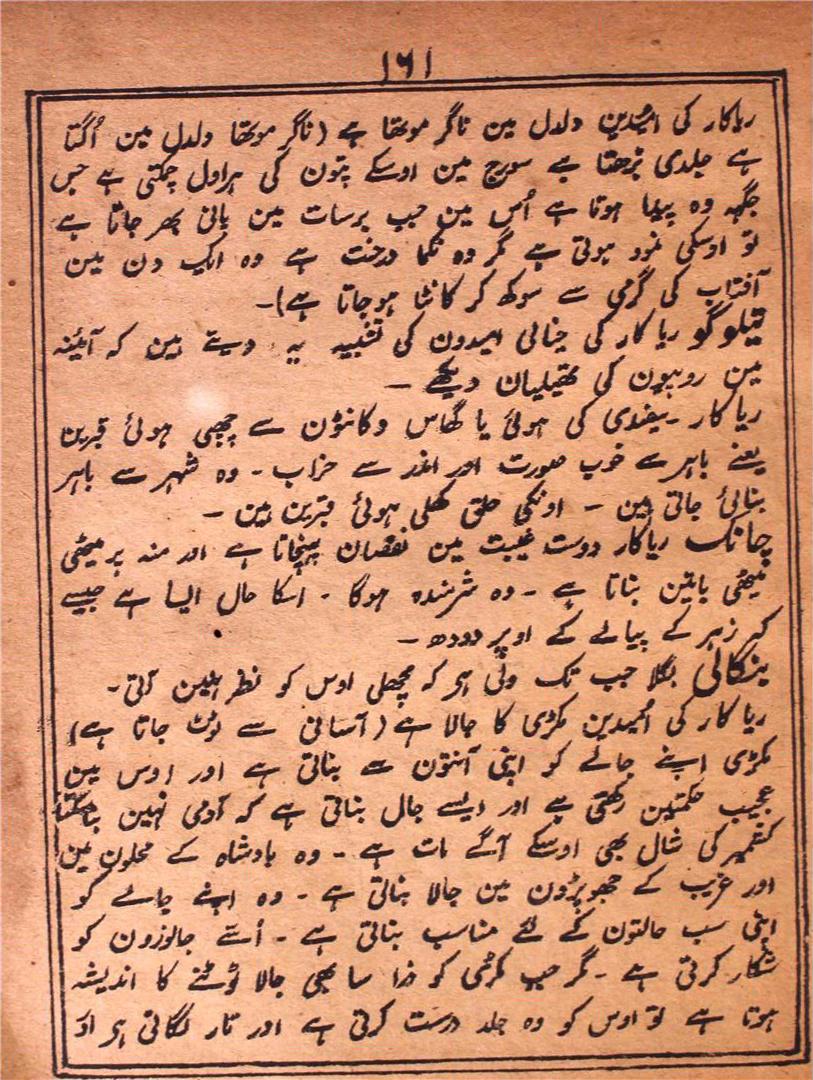 ۱۶۱
ریاکار کی امیدین دلدل مین ناگر موتھا ہے (ناگر موتھا دلدل مین اُگتا
ہے جلدی بڑھتا ہے سورج مین اوسکے پتون کی ہراول چمکتی ہے جس
جگہہ وہ پیدا ہوتا ہے اُس مین جب برسات مین پانی بھر جاتا ہے
تو اوسکی نمود ہوتی ہے گر وہ نکما درخت ہے وہ ایک دن مین
آفتاب کی گرمی سے سوکھ کر کانٹا ہوجاتا ہے)۔
تیلوگو ریاکار کی خیالی امیدون کی تشبیہ یہ دیتے ہین کہ آئینہ
مین روپیون کی تھیلیان دیکھے ۔
ریا کار ۔ سفیدی کی ہوئی یا گھاس و کانٹون سے چھپی ہوئی قبرین
یعنے باہر سے خوب صورت اور اندر سے خراب ۔ وہ شہر سے باہر
بنائی جاتی ہین ۔ اونکی حلق کھلی ہوئی قبرین ہین ۔
چانک ریاکار دوست غیبت مین نقصان پہنچاتا ہے اور منہ پر میٹھی
میٹھی باتین بناتا ہے ۔ وہ شرمندہ ہوگا ۔ اسکا حال ایسا ہے جیسے
کہ زہر کے پیالے کے اوپر دودھ ۔
بنگالی بگلا جب تک ولی ہی کہ مچھلی اوس کو نظر نہین آتی ۔
ریا کار کی امیدین مکڑی کا جالا ہے (آسانی سے ٹوٹ جاتا ہے)
مکڑی اپنے جالے کو اپنی آنتون سے بناتی ہے اور اوس مین
عجیب حکمتین رکھتی ہے اور ایسے جال بناتی ہے کہ آدمی نہین بناسکتا
کشمیر کی شال بھی اوسکے آگے مات ہے ۔ وہ بادشاہ کے محلون مین
اور غریب کے جھوپڑون مین جالا بناتی ہے ۔ وہ اپنے جالے کو
اپنی سب حالتون کے لئے مناسب بناتی ہے ۔ اُسّے جانورون کو
شکار کرتی ہے ۔ گر جب مکڑی کو ذرا سا بھی جالا ٹوٹنے کا اندیشہ
ہوتا ہے تو اوس کو وہ جلد درست کرتی ہے اور تار لگاتی ہی او